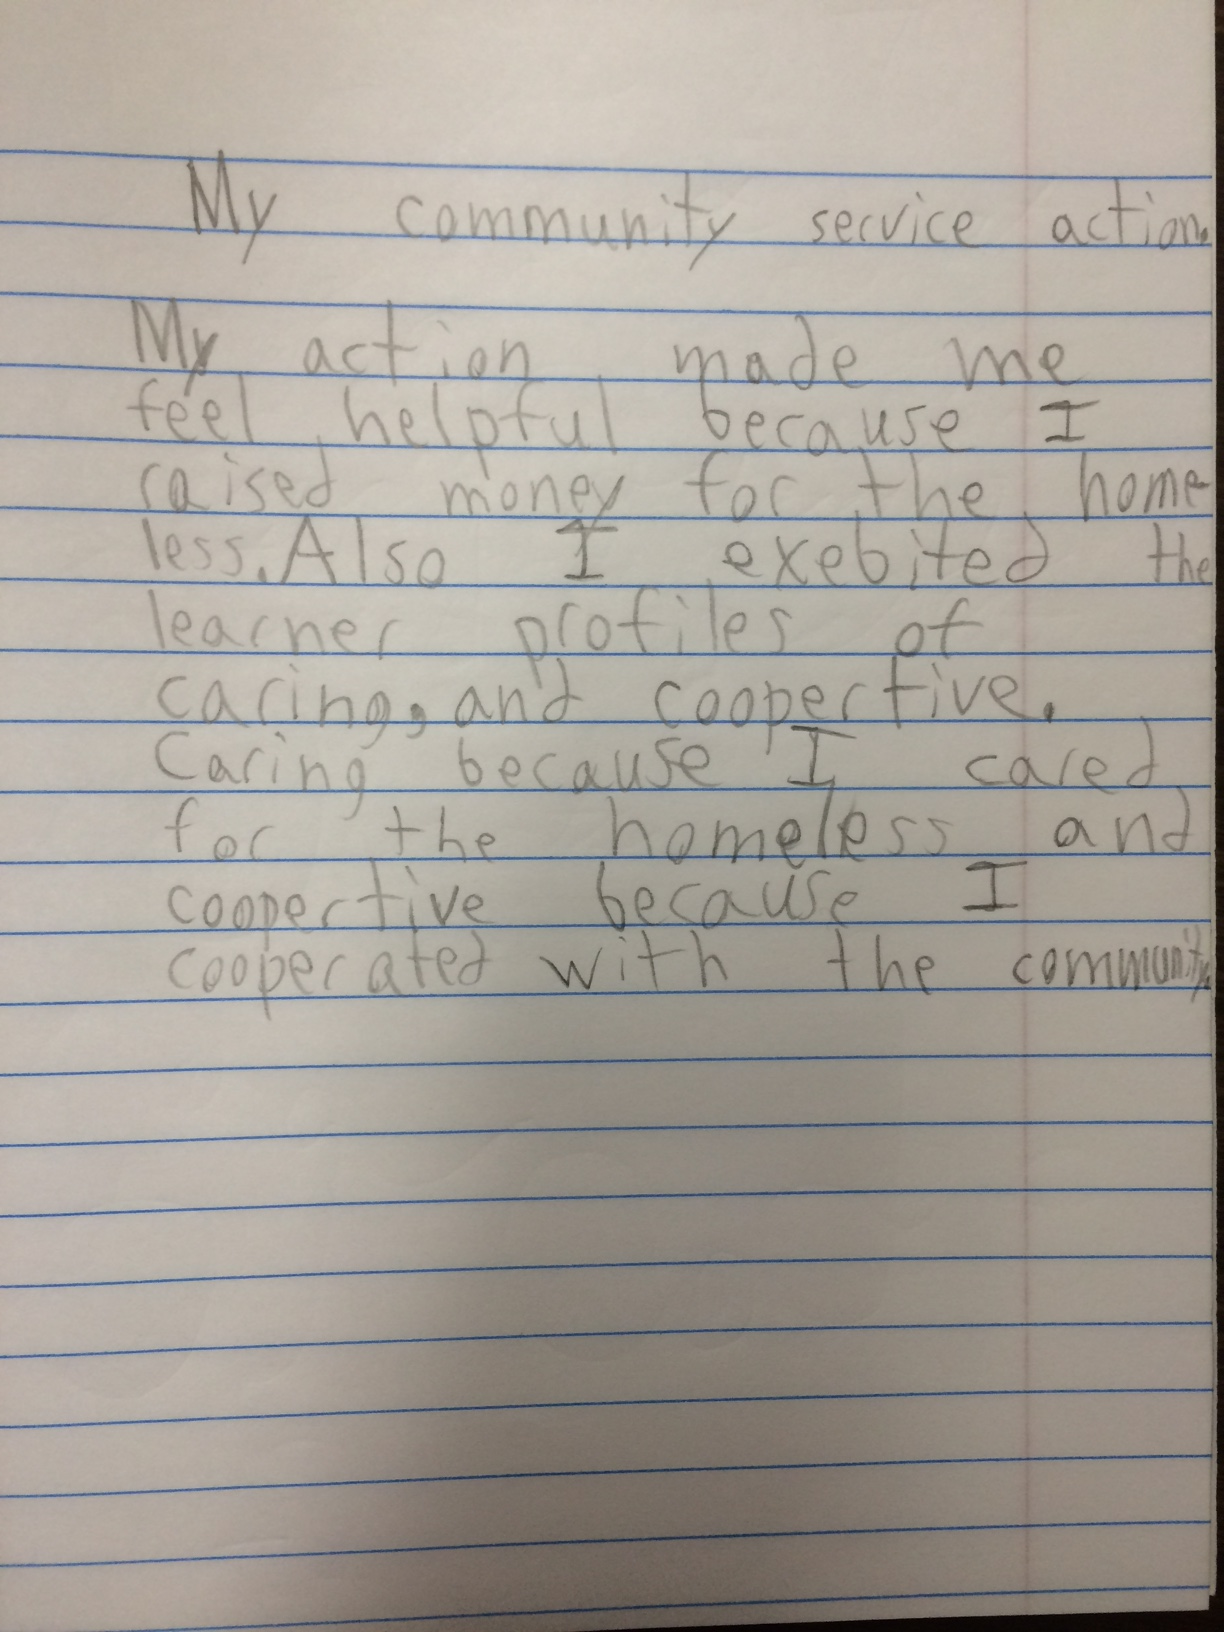 My community service action.
My action made me
feel helpful because I
raised money for the home-
less. Also I exebited the
learner profiles of
caring, and coopertive.
Caring because I cared
for the homeless and
coopertive because I
cooperated with the community.